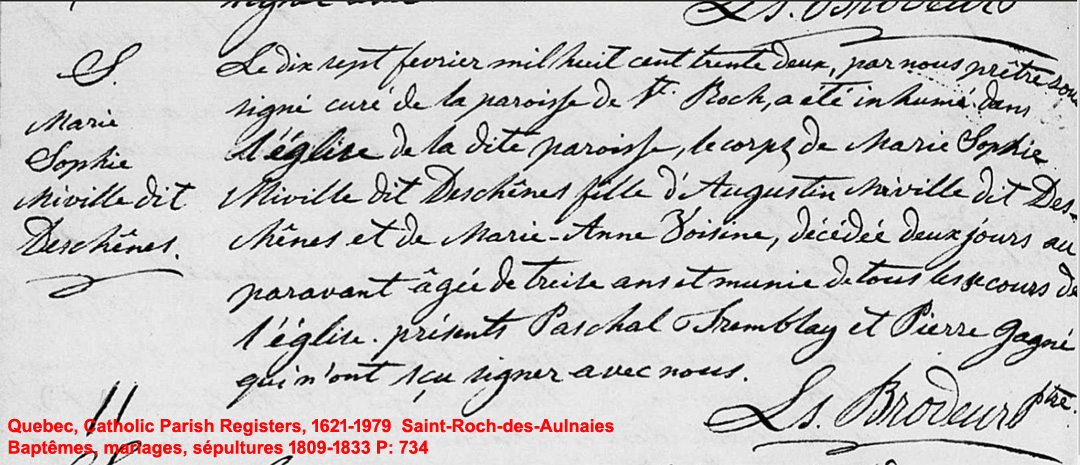 Ls. Brodeur
S.
Marie
Sophie
Miville dit
Deschênes.
Le dix sept fevrier mil huit cent trente deux, par nous prêtre sous
signé curé de la paroisse de St. Roch, a été inhumé dans
l'église de la dite paroisse, le corps de Marie Sophie
Miville dit Deschênes fille d'Augustin Miville dit Des-
chênes et de Marie-Anne Voisine, décédée deux jours au
paravant âgée de treise ans et munie de tous les secours de
l'église. présents Paschal Tremblay et Pierre Gagné
qui n'ont sçu signer avec nous.
Ls. Brodeur ptre.
Quebec, Catholic Parish Registers, 1621-1979 Saint-Roch-des-Aulnaies
Baptêmes, mariages, sépultures 1809-1833 P: 734